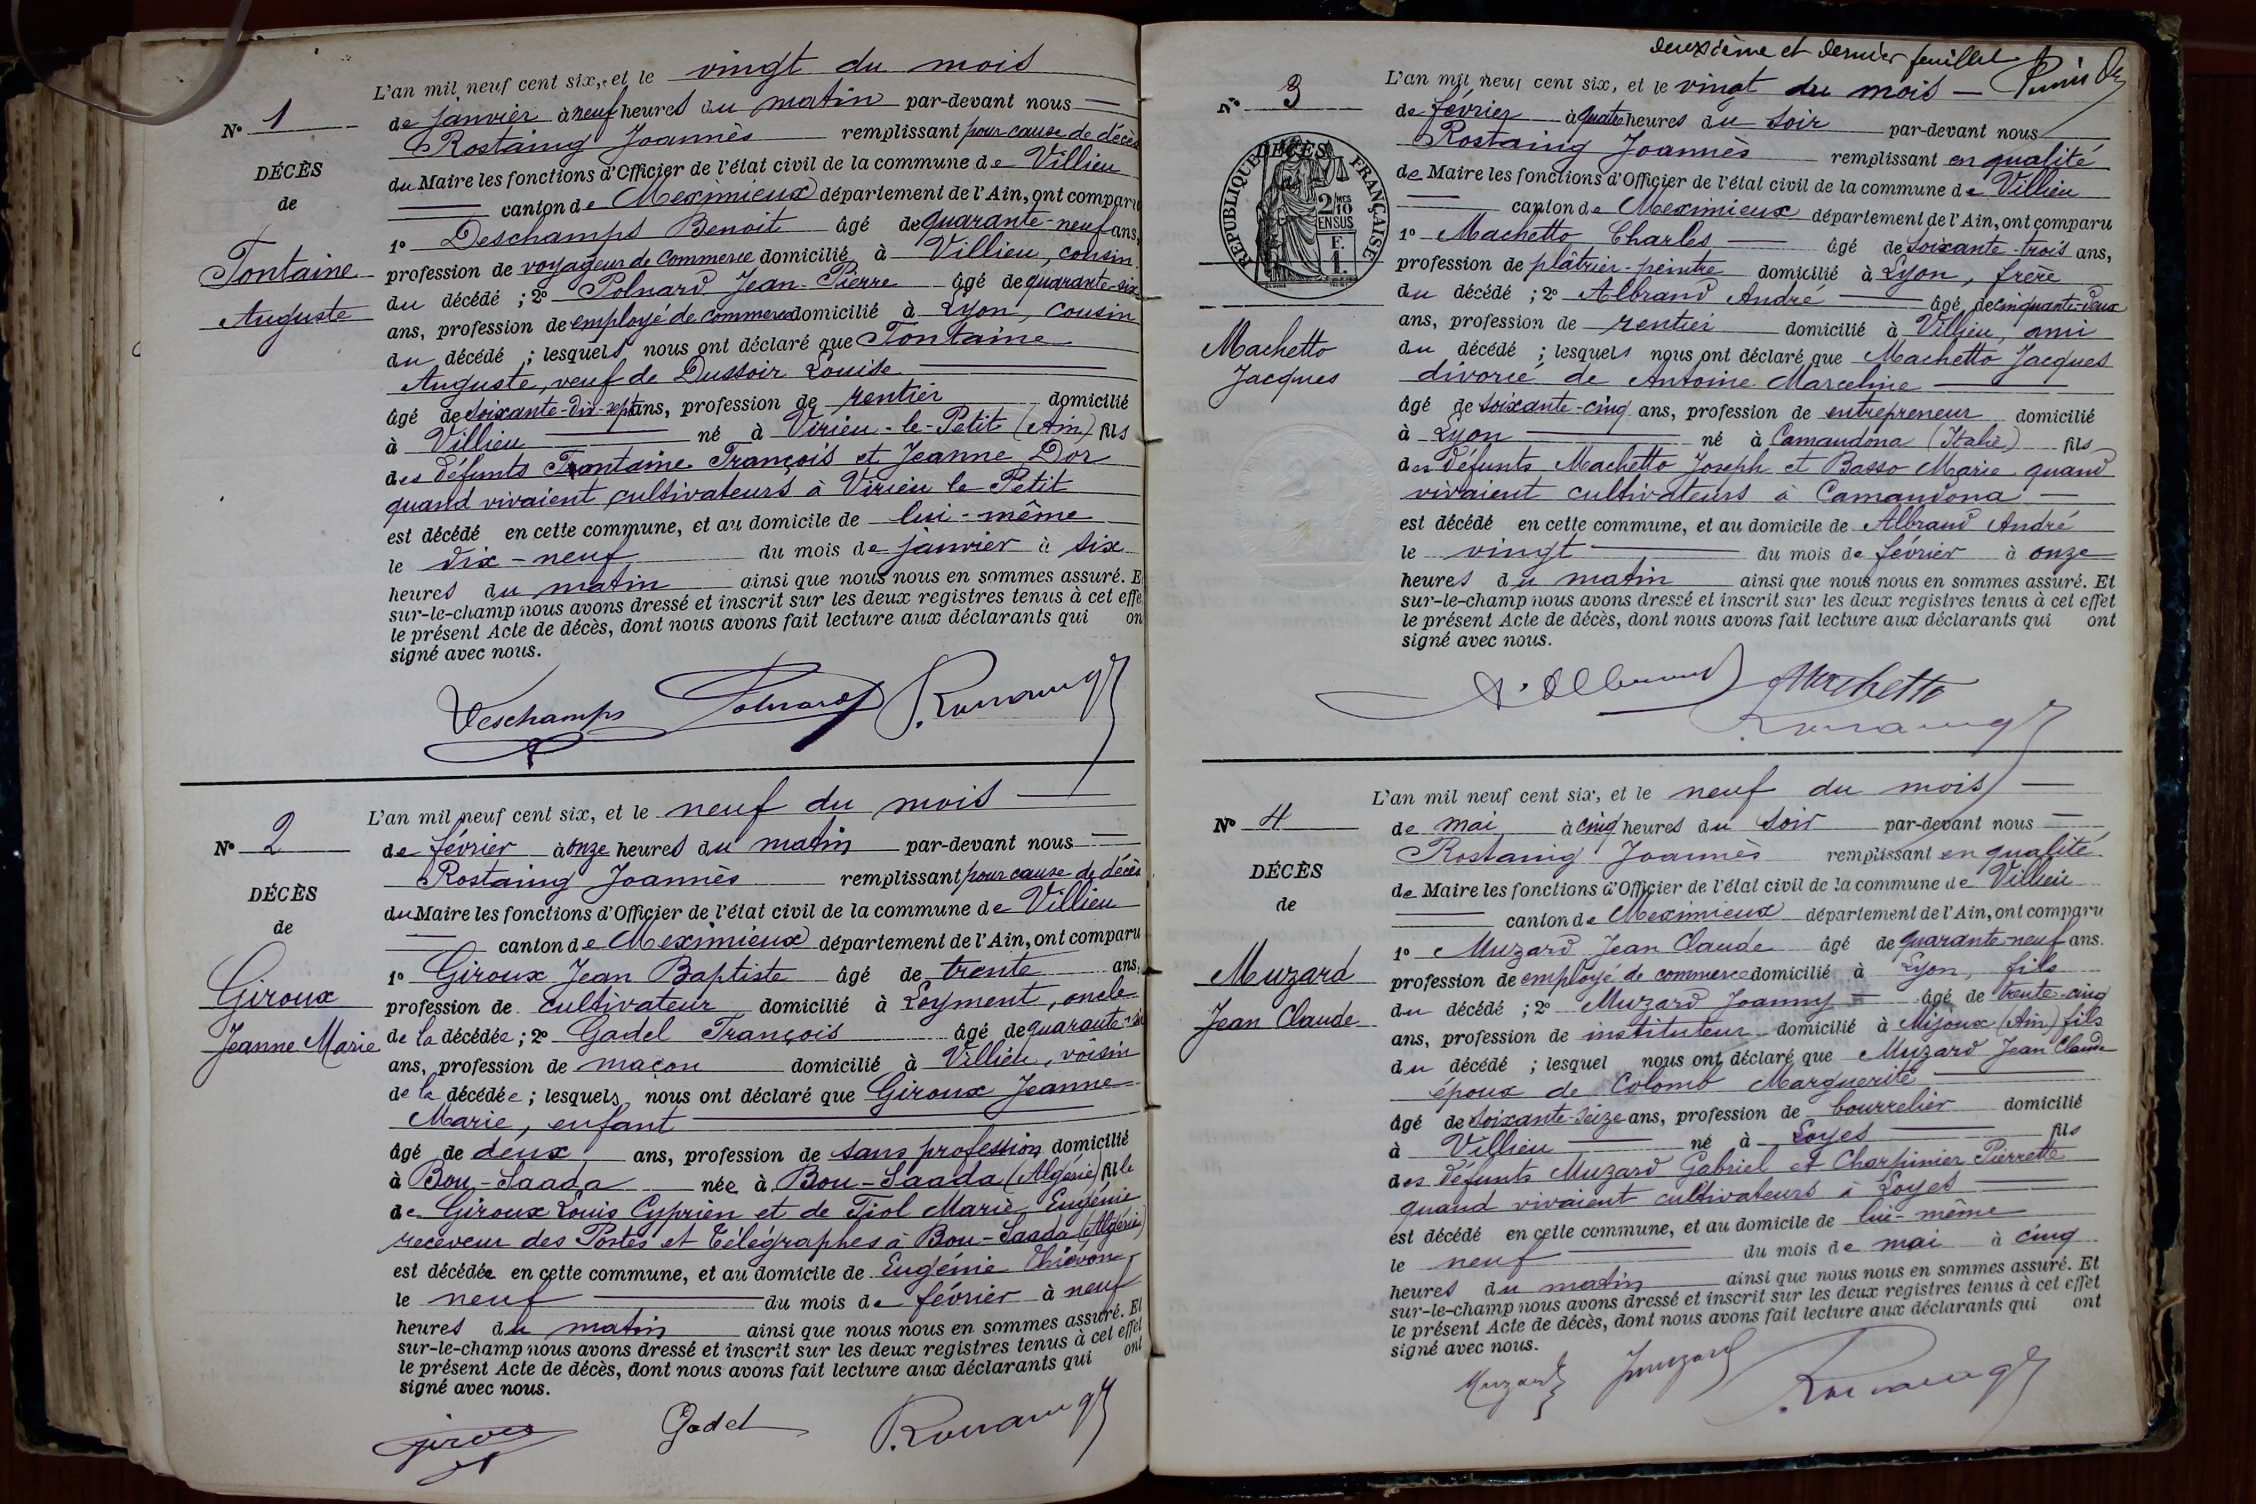 L'an mil neuf cent six, et le vingt du mois
N° 1
de janvier à neuf heures du matin par-devant nous
Rostaing Joannès remplissant pour cause de décès
DÉCÈS
du Maire les fonctions d'Officier de l'état civil de la commune de Villieu
de
canton de Meximieux département de l'Ain, ont comparu
1° Deschamps Benoit âgé de quarante-neuf ans,
Fontaine
profession de voyageur de commerce domicilié à Villieu, cousin
du décédé ; 2° Polnard Jean-Pierre âgé de quarante-six
Auguste
ans, profession de employé de commerce domicilié à Lyon, cousin
du décédé ; lesquels nous ont déclaré que Fontaine
Auguste, veuf de Dussoir Louise
âgé de soixante-dix-sept ans, profession de rentier domicilié
à Villieu né à Virieu-le-Petit (Ain) fils
des défunts Fontaine François et Jeanne Dor
quand vivaient cultivateurs à Virieu le Petit
est décédé en cette commune, et au domicile de lui-même
le dix-neuf du mois de janvier à six
heures du matin ainsi que nous nous en sommes assuré. E
sur-le-champ nous avons dressé et inscrit sur les deux registres tenus à cet effe
le présent Acte de décès, dont nous avons fait lecture aux déclarants qui on
signé avec nous.
Deschamps Polnard J. Rostaing
L'an mil neuf cent six, et le neuf du mois
N° 2
de février à onze heures du matin par-devant nous
Rostaing Joannès remplissant pour cause de décès
DÉCÈS
du Maire les fonctions d'Officier de l'état civil de la commune de Villieu
de
canton de Meximieux département de l'Ain, ont comparu
1° Giroux Jean Baptiste âgé de trente ans,
Giroux
profession de cultivateur domicilié à Loyment, oncle
Jeanne Marie
de la décédée ; 2° Gadel François âgé de quarante
ans, profession de maçon domicilié à Villieu, voisin
de la décédée ; lesquels nous ont déclaré que Giroux Jeanne
Marie, enfant
âgé de deux ans, profession de sans profession domicilié
à Bou-Saada née à Bou-Saada (Algérie) fille
de Giroux Louis Cyprien et de Tiol Marie Eugénie
receveur des Postes et Télégraphes à Bou-Saada (Algérie)
est décédée en cette commune, et au domicile de Eugénie Thiévon
le neuf du mois de février à neuf
heures du matin ainsi que nous nous en sommes assuré. Et
sur-le-champ nous avons dressé et inscrit sur les deux registres tenus à cet effet
le présent Acte de décès, dont nous avons fait lecture aux déclarants qui ont
signé avec nous.
Giroux Gadel J. Rostaing
deuxième et dernier feuillet
L'an mil neuf cent six, et le vingt du mois
N° 3
de février à quatre heures du soir par-devant nous
Rostaing Joannès remplissant en qualité
DÉCÈS
de
RÉPUBLIQUE FRANÇAISE
2/10 EN SUS
F. 1.
de Maire les fonctions d'Officier de l'état civil de la commune de Villieu
canton de Meximieux département de l'Ain, ont comparu
1° Machetto Charles âgé de soixante-trois ans,
profession de plâtrier-peintre domicilié à Lyon, frère
du décédé ; 2° Albrand André âgé de cinquante-deux
ans, profession de rentier domicilié à Villieu, ami
Machetto
du décédé ; lesquels nous ont déclaré que Machetto Jacques
Jacques
divorcé de Antoine Marceline
âgé de soixante-cinq ans, profession de entrepreneur domicilié
à Lyon né à Camandona (Italie) fils
des défunts Machetto Joseph et Basso Marie quand
vivaient cultivateurs à Camandona
est décédé en cette commune, et au domicile de Albrand André
le vingt du mois de février à onze
heures du matin ainsi que nous nous en sommes assuré. Et
sur-le-champ nous avons dressé et inscrit sur les deux registres tenus à cet effet
le présent Acte de décès, dont nous avons fait lecture aux déclarants qui ont
signé avec nous.
A. Albrand Machetto
J. Rostaing
L'an mil neuf cent six, et le neuf du mois
N° 4
de mai à cinq heures du soir par-devant nous
Rostaing Joannès remplissant en qualité
DÉCÈS
de Maire les fonctions d'Officier de l'état civil de la commune de Villieu
de
canton de Meximieux département de l'Ain, ont comparu
1° Muzard Jean Claude âgé de quarante neuf ans.
Muzard
profession de employé de commerce domicilié à Lyon, fils
du décédé ; 2° Muzard Joanny âgé de trente-cinq
Jean Claude
ans, profession de instituteur domicilié à Mijoux (Ain) fils
du décédé ; lesquel nous ont déclaré que Muzard Jean Claude
époux de Colomb Marguerite
âgé de soixante-seize ans, profession de bourrelier domicilié
à Villieu né à Loyes fils
des défunts Muzard Gabriel et Charpinier Pierrette
quand vivaient cultivateurs à Loyes
est décédé en cette commune, et au domicile de lui-même
le neuf du mois de mai à cinq
heures du matin ainsi que nous nous en sommes assuré. Et
sur-le-champ nous avons dressé et inscrit sur les deux registres tenus à cet effet
le présent Acte de décès, dont nous avons fait lecture aux déclarants qui ont
signé avec nous.
Muzard J Muzard J. Rostaing